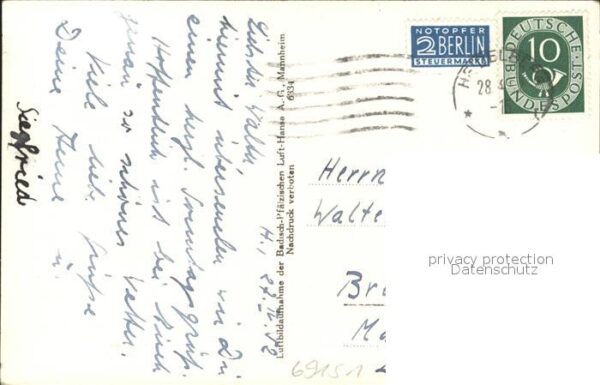 H., 27.IV.52
Lieber Walter
hiermit übersenden wir Dir
einen herzl. Sonntagsgruß.
Hoffentlich ist bei Euch
genau so schönes Wetter.
Viele liebe Grüße
Deine Anne u.
Siegfried
Luftbildaufnahme der Badisch-Pfälzischen Luft-Hansa A.G. Mannheim
Nachdruck verboten
6334
NOTOPFER
2 BERLIN
STEUERMARKE
DEUTSCHE
BUNDESPOST
10
28
Herrn
Walte
Br
Ma
privacy protection
Datenschutz
69151